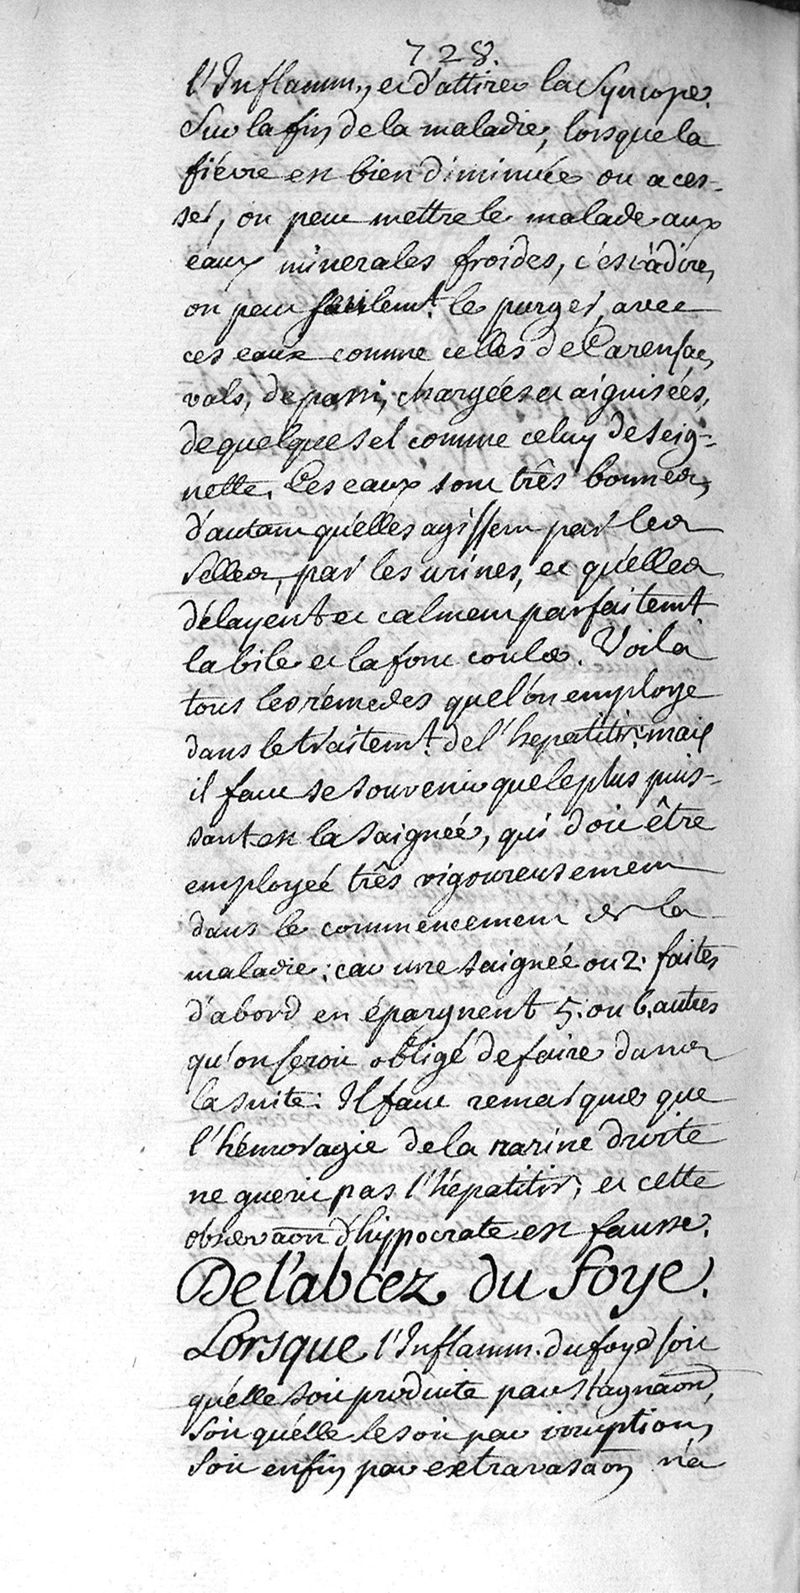 728.
l'Inflamm., et d'attirer la Syncope.
Sur la fin de la maladie, lorsque la
fiévre est bien diminuée ou a ces-
sé, on peut mettre le malade aux
eaux minerales froides, c'est àdire,
on peut facilemt. le purger avec
ces eaux comme celles de Carensac,
vals, de passi, chargées et aiguisées,
de quelque sel comme celuy de seig-
nette. Ces eaux sont três bonnes,
d'autant qu'elles agissent par les
selles, par les urines, et qu'elles
délayent et calment parfaitemt.
la bile et la font couler. Voila
tous les rémedes que l'on employe
dans le traitemt. de l'hepatitis: mais
il faut se souvenir que le plus puis-
sant est la saignée, qui doit être
employée três vigoureusement
dans le commencement de la
maladie: car une saignée ou 2. faites
d'abord en épargnent 5. ou 6. autres
qu'on seroit obligé de faire dans
la suite: Il faut remarquer que
l'hémoragie de la narine droite
ne guerit pas l'hépatitis, et cette
observaõn d'hyppocrate est fausse.
De l'abcez du foye.
Lorsque l'Inflamm. du foye soit
qu'elle soit produite par stagnaõn,
soit qu'elle le soit par irruption,
soit enfin par extravasaõn n'a